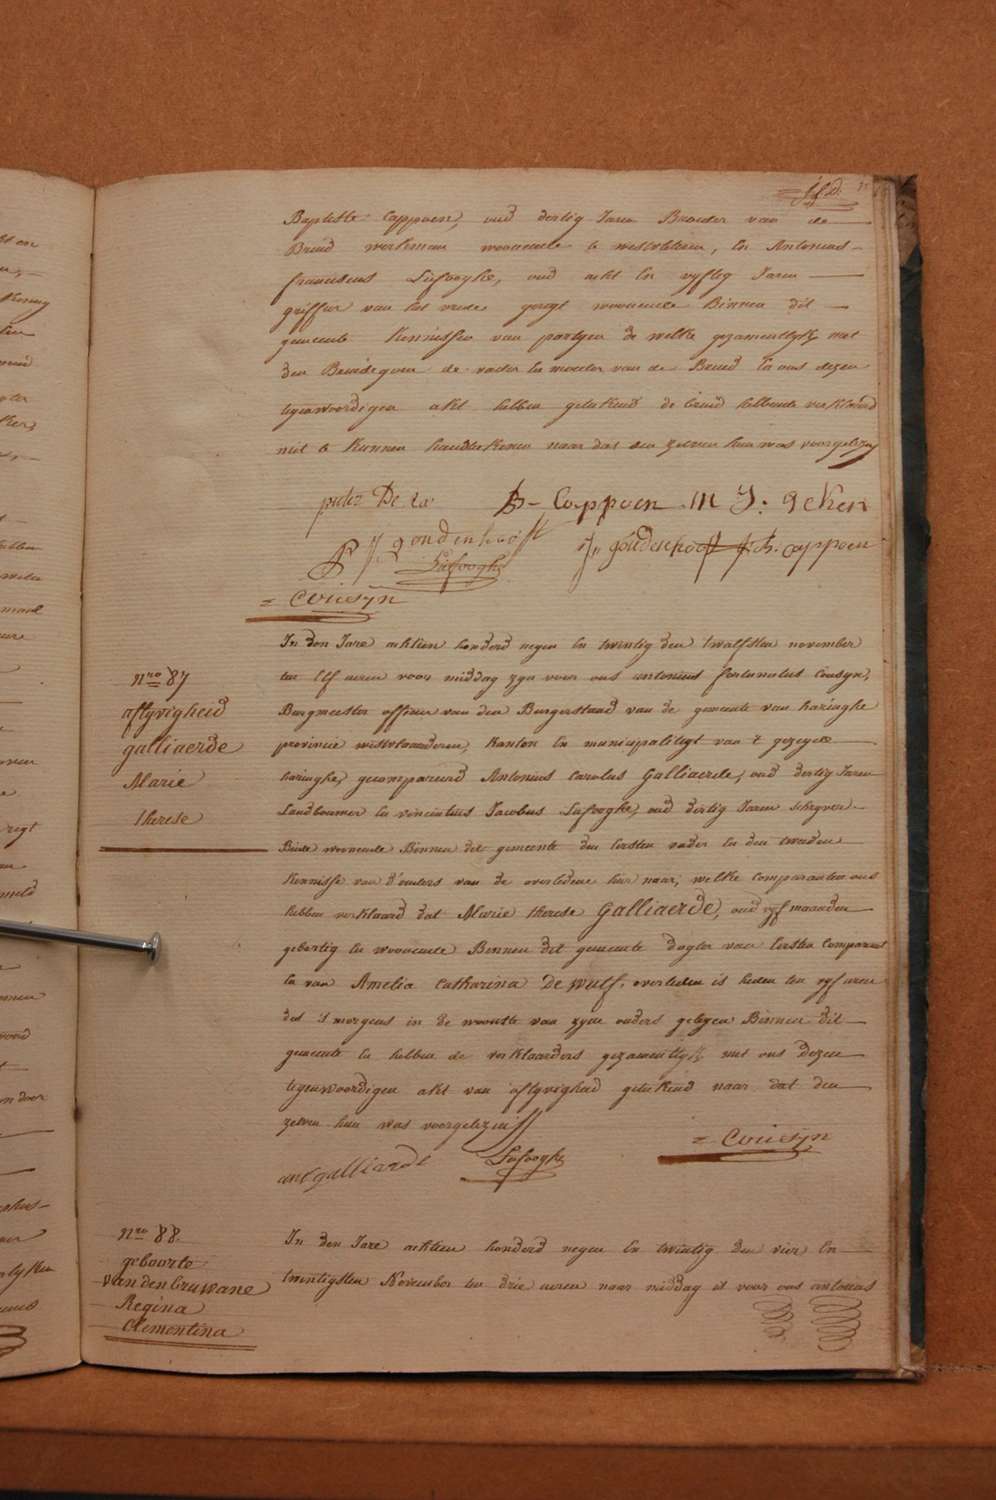 Baptiste Cappoen, oud dertig Jaren Broeder van de
Bruid werkman woonende te westvleteren, en Antonius
franciscus Lafooghe, oud acht en vyftig Jaren
griffier van het vrede geregt woonende Binnen dit
gemeente kennissen van partyen de welke gezamentlyk met
den Bruidegom de vader en moeder van de Bruid en ons dezen
tegenwoordigen akt hebben geteekend de bruid hebbende verklaerd
niet te kunnen handteekenen naar dat den zelven hun was voorgelezen
pieter De La B- Cappoen M J: Geken
P J Lafooghe J. B. cappoen
= Couseyn
In den Jare achtien honderd negen en twintig den twalfsten november
nro 87
ten Elf uren voor middag zyn voor ons antonius fortunatus Couseyn,
aflyvigheid
Burgmeester officier van den Burgerstaed van de gemeente van haringhe
galliaerde
provincie westvlaanderen, kanton en municipaliteyt van 't gezeyde
Marie
haringhe, gecompareerd Antonius Carolus Galliaerde, oud dertig Jaren
therese
Landbouwer en vincentius Jacobus Lafooghe, oud dertig Jaren schryver
Beide woonende Binnen det gemeente den Eersten vader en den tweeden
kennisse van d'ouders van de overledene hier naar, welke comparanten ons
hebben verklaard dat Marie therese Galliaerde, oud vyf maanden
gebortig en woonende Binnen dit gemeente dogter van Eersten Comparant
en van Amelia Catharina De Wulf, overleden is heden ten vyf uren
des 's morgens in de woonste van zyne ouders gelegen Binnen dit
gemeente en hebben de verklaarders gezamentlyk met ons dezen
tegenwoordigen akt van aflyvigheid geteekend naar dat den
zelven hun was voorgelezen
= Couseyn
ant galliarde Lafooghe
nro 88.
In den Jare achtien honderd negen en twintig den vier en
geboorte
twintigsten November ten drie uren naar middag is voor ons antonius
vandenbruwane
Regina
Clementina